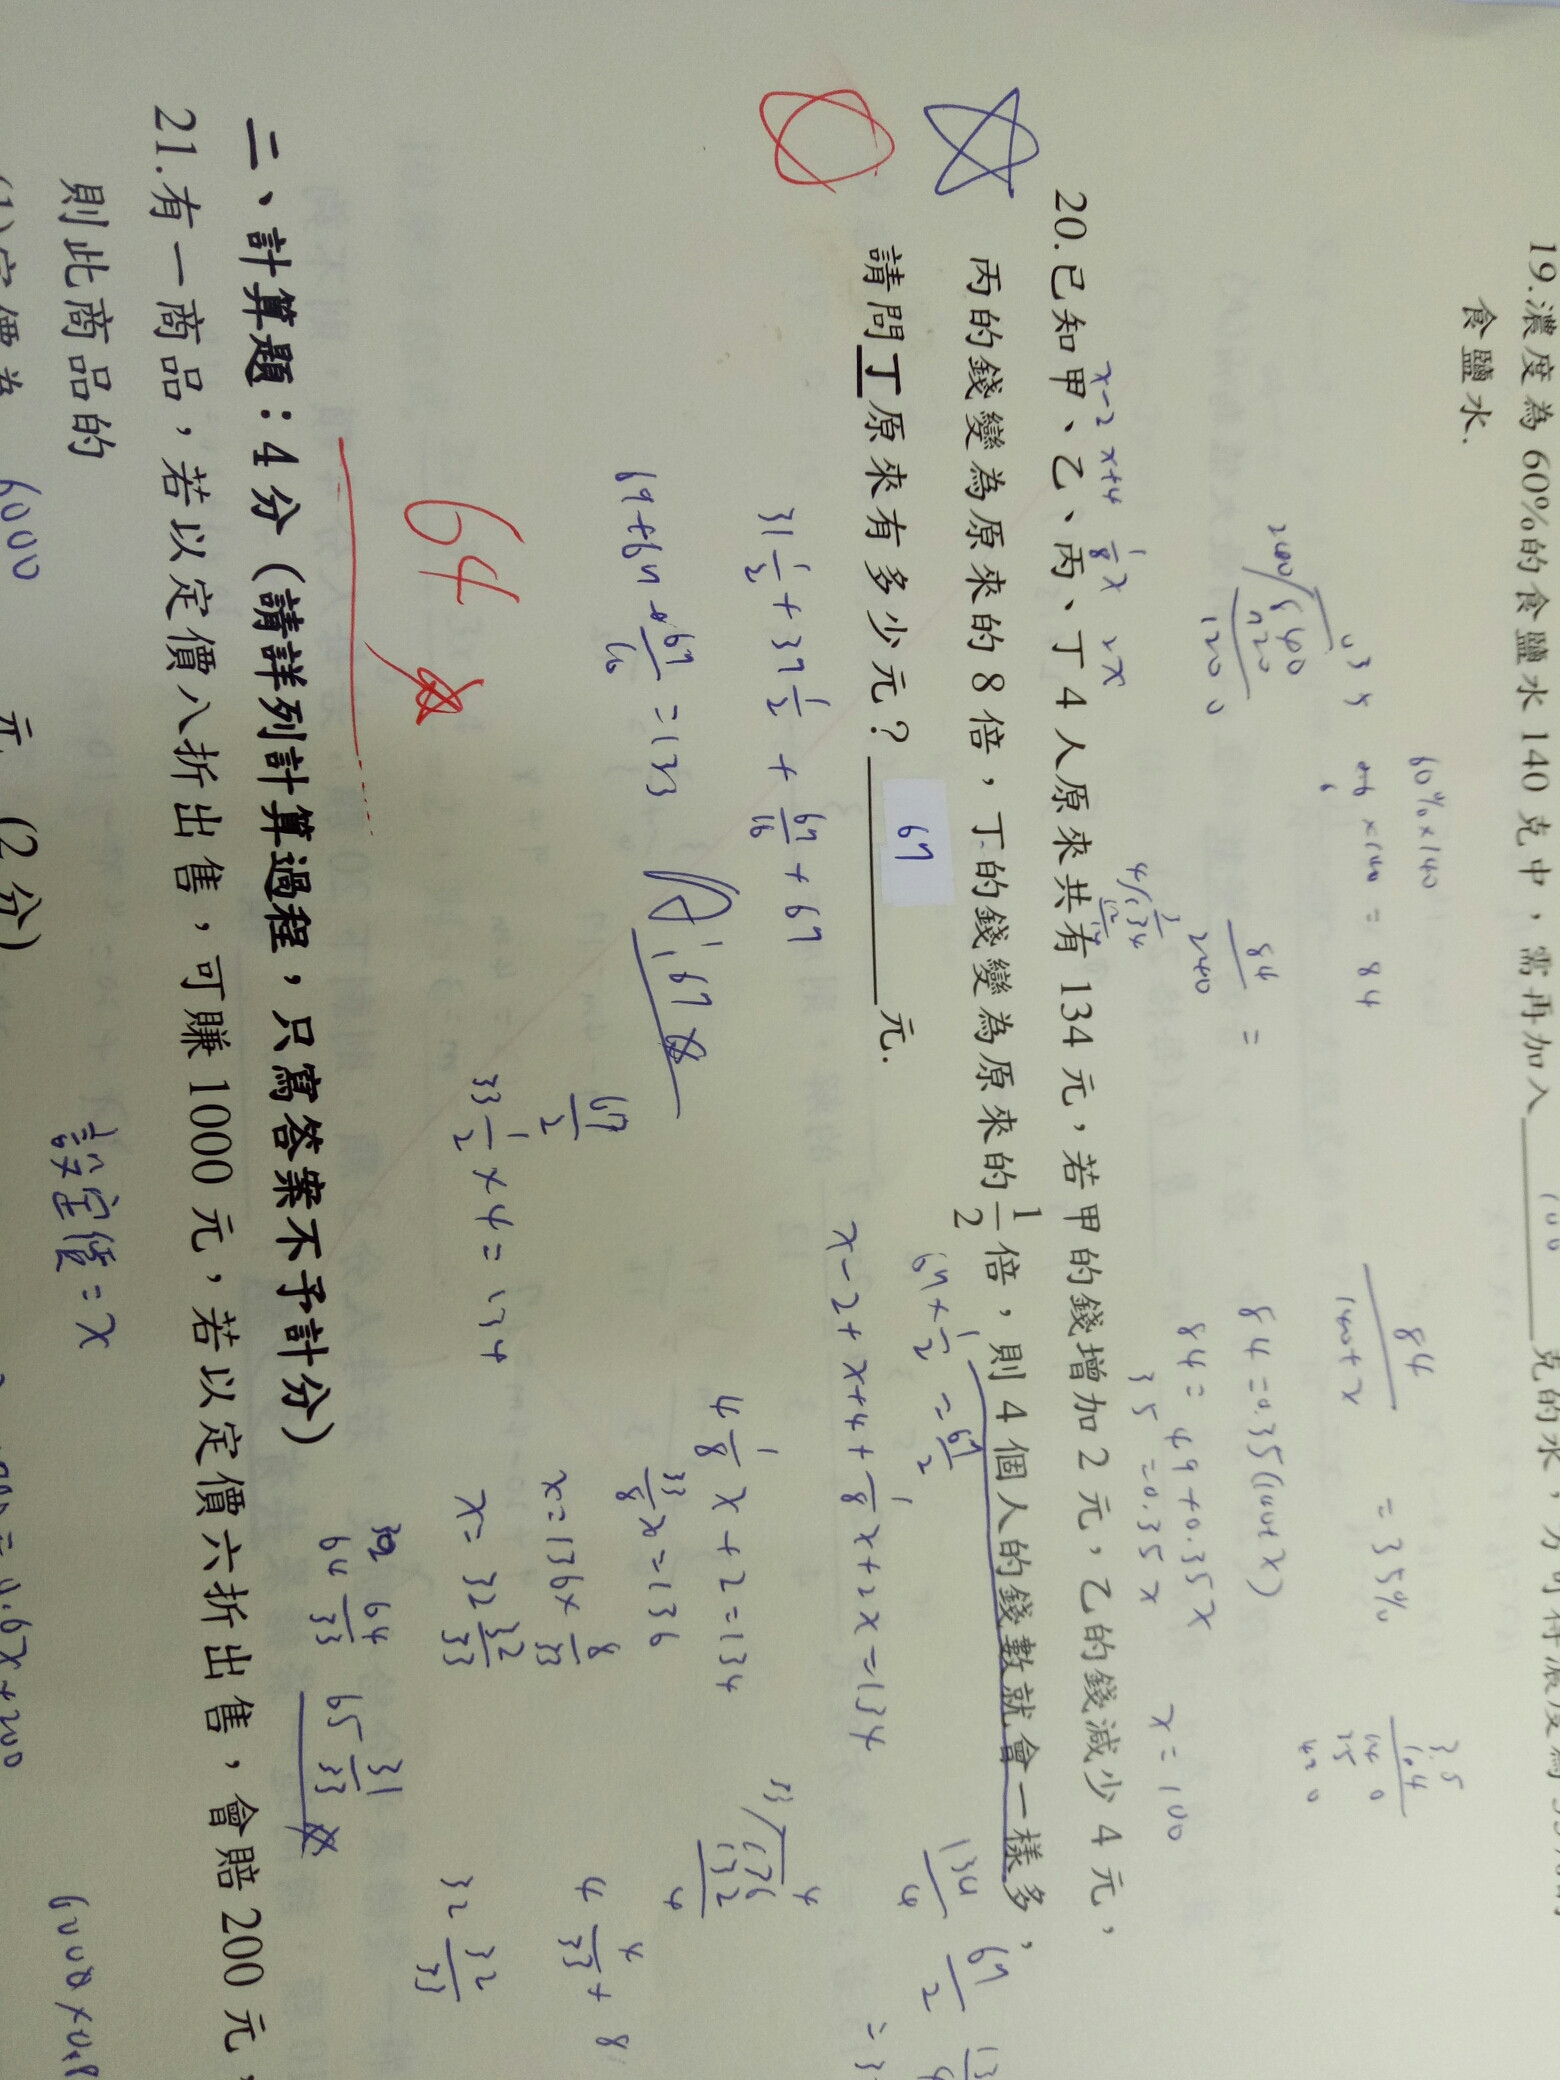 19.濃度為60%的食鹽水140克中，需再加入 克的水，方可得濃度為35%的
食鹽水.
60%×140
= 84
84
140+x
= 35%
84=0.35(140+x)
84=49+0.35x
35=0.35x
x=100
x-2 x+4 1/8x 2x
20.已知甲、乙、丙、丁4人原來共有134元，若甲的錢增加2元，乙的錢減少4元，
丙的錢變為原來的8倍，丁的錢變為原來的1/2倍，則4個人的錢數就會一樣多，
請問丁原來有多少元？ 67 元.
67×1/2=67/2
134/4 67/2
x-2+x+4+1/8x+2x=134
31 1/2+37 1/2+67/16+67
4 1/8x+2=134
69+67+67/16=133
A:67
33/8x=136
67/2
x=136×8/33
33 1/2×4=134
x=32 32/33
4 4/33×8
32 32/33
64
64 64/33 65 31/33
二、計算題：4分（請詳列計算過程，只寫答案不予計分）
21.有一商品，若以定價八折出售，可賺1000元，若以定價六折出售，會賠200元，
則此商品的
設定價=x
(1)定價為 6000 元 (2分)
6000×0.8